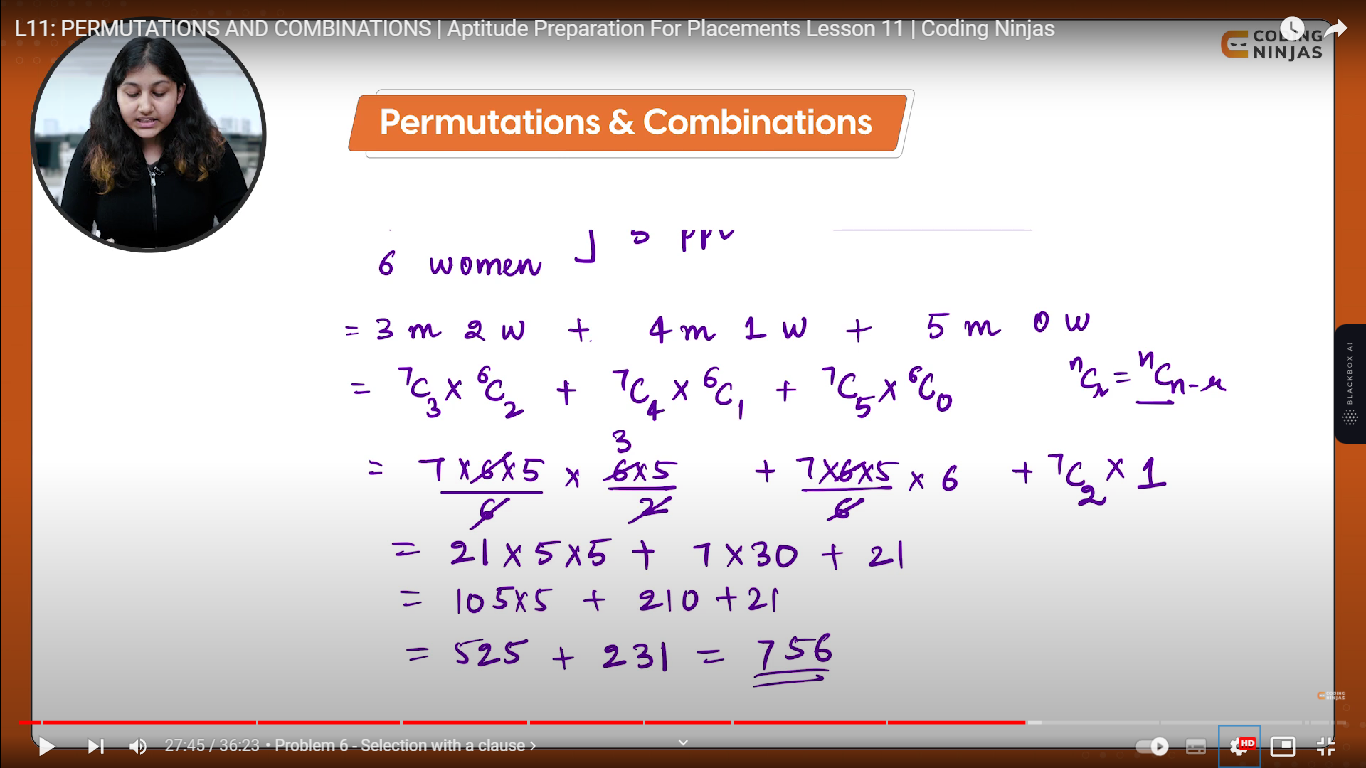 L11: PERMUTATIONS AND COMBINATIONS | Aptitude Preparation For Placements Lesson 11 | Coding Ninjas
CODING
NINJAS
Permutations & Combinations
6 women
= 3 m 2 w + 4 m 1 w + 5 m 0 w
= ⁷C₃ × ⁶C₂ + ⁷C₄ × ⁶C₁ + ⁷C₅ × ⁶C₀
ⁿCᵣ = ⁿCₙ₋ᵣ
3
= 7×6×5/6 × 6×5/2 + 7×6×5/6 × 6 + ⁷C₂ × 1
= 21 × 5 × 5 + 7 × 30 + 21
= 105×5 + 210 + 21
= 525 + 231 = 756
BLACKBOX AI
CODING
NINJAS
27:45 / 36:23 • Problem 6 - Selection with a clause ›
HD